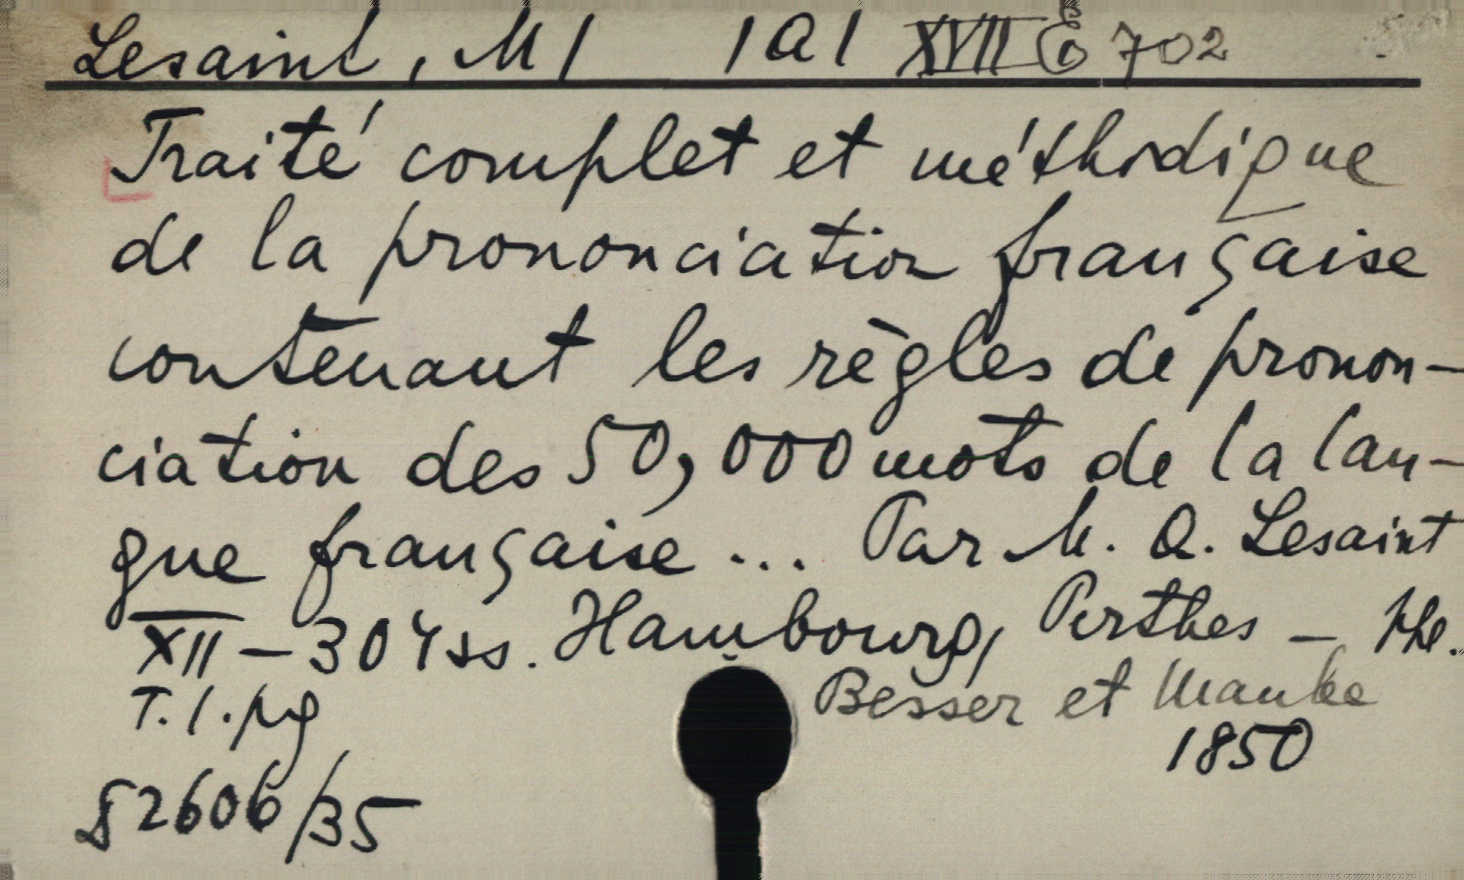 Lesaint, M/ /A/ XVII E 702
Traité complet et méthodique
de la prononciation française
contenant les règles de pronon-
ciation des 50,000 mots de la lan-
gue française ... Par M. A. Lesaint
XII - 304 ss. Hambourg, Perthes -
T. 1. pg Besser et Mauke
1850
82606/35